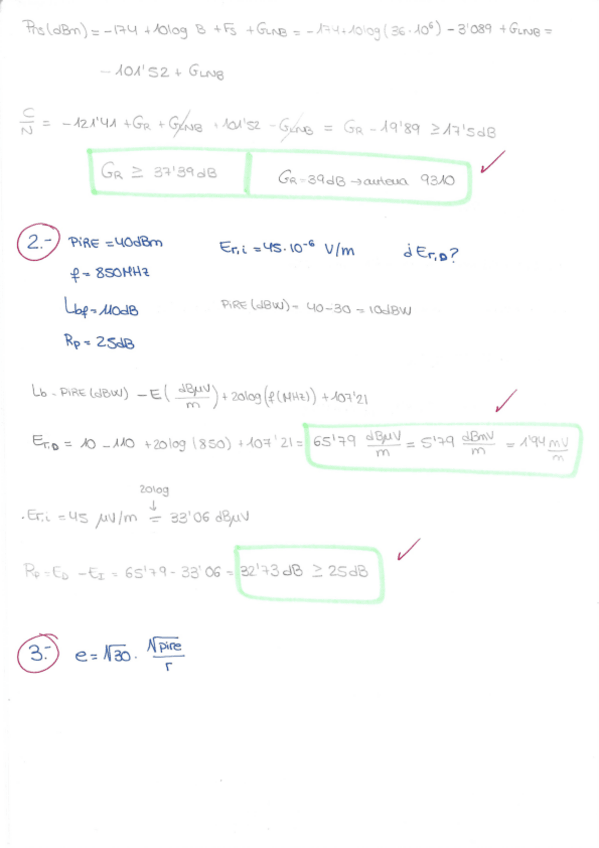 PNS(dBm) = -174 + 10log B + Fs + GLNB = -174 + 10log(36·10⁶) - 3'089 + GLNB =
- 101'52 + GLNB
C/N = -121'41 + GR + GLNB + 101'52 - GLNB = GR - 19'89 ≥ 17'5dB
GR ≥ 37'39dB GR = 39dB → antena 9310
2.- PIRE = 40dBm Er,i = 45·10⁻⁶ V/m ¿Er,D?
f = 850MHz
Lbf = 110dB PIRE(dBW) = 40-30 = 10dBW
Rp = 25dB
Lb = PIRE(dBW) - E(dBμV/m) + 20log(f(MHz)) + 107'21
Er,D = 10 - 110 + 20log(850) + 107'21 = 65'79 dBμV/m = 5'79 dBmV/m = 1'94 mV/m
20log
↓
·Er,i = 45 μV/m = 33'06 dBμV
Rp = ED - EI = 65'79 - 33'06 = 32'73dB ≥ 25dB
3.- e = √30 · √pire/r